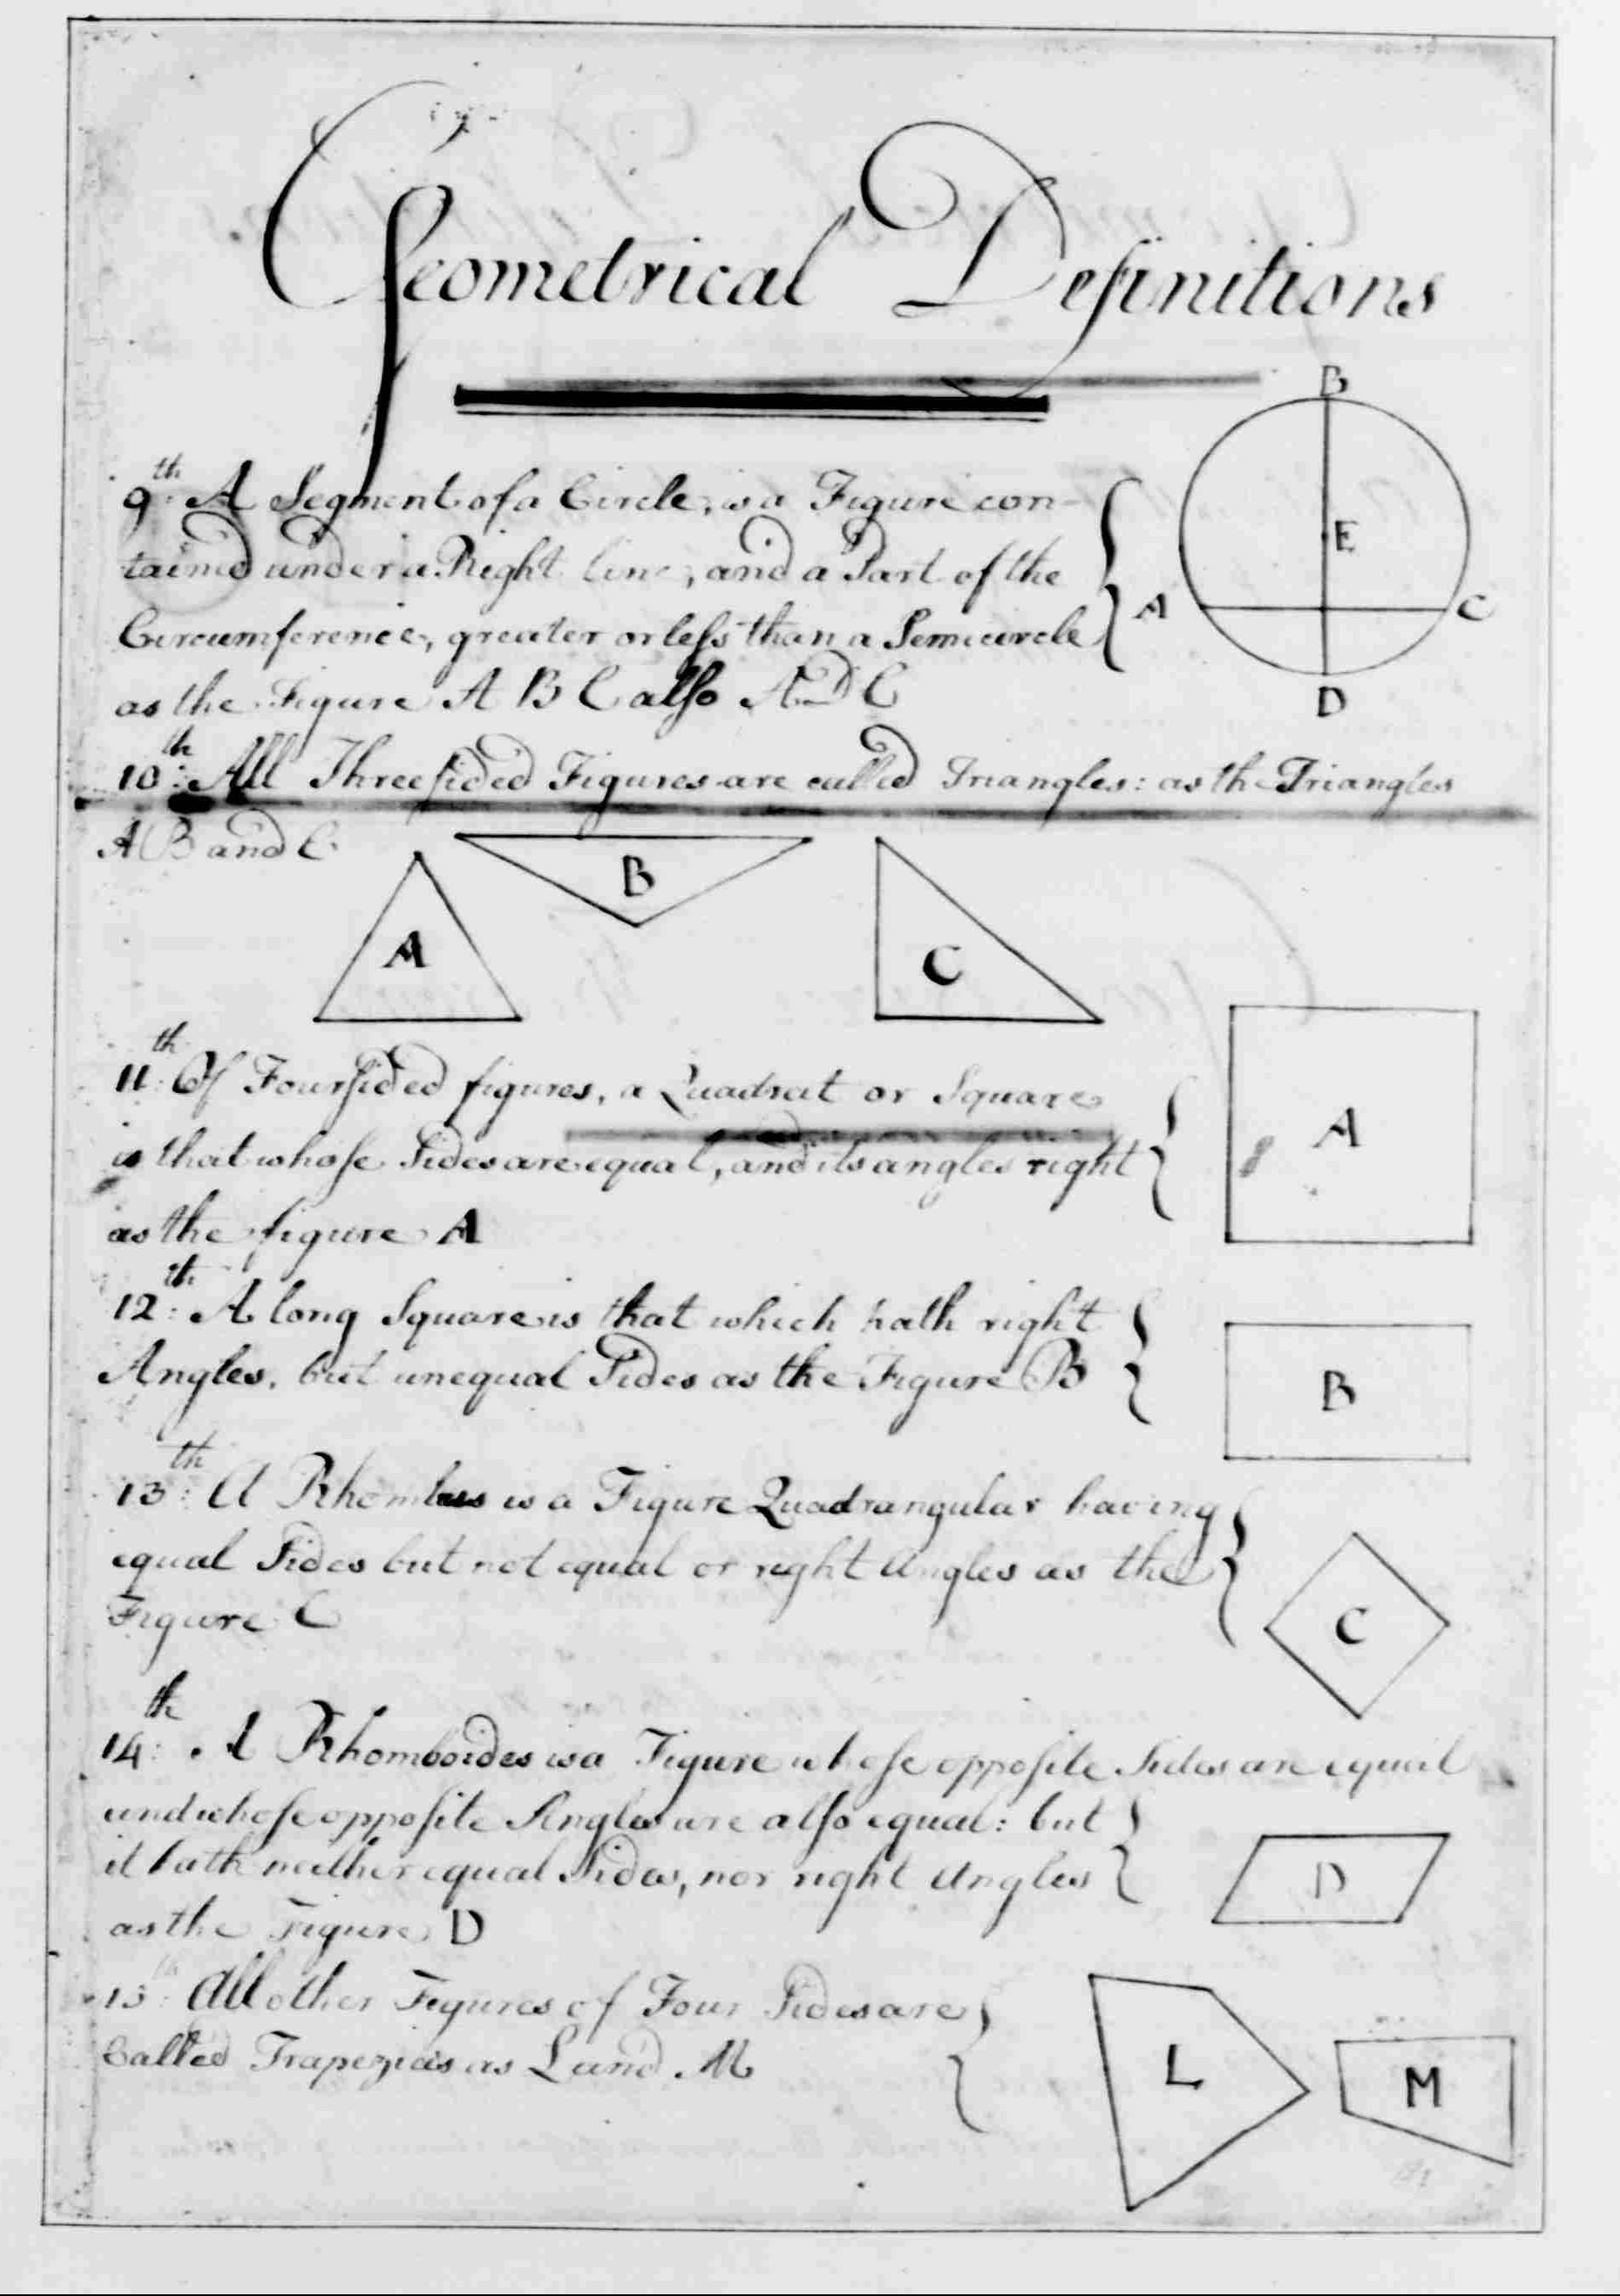 Geometrical Definitions
B
9th: A Segment of a Circle, is a Figure con-
tained under a Right line, and a Part of the
E
Circumference, greater or leſs than a Semicircle
A
C
as the Figure A B C alſo A D C
D
10th: All Three ſided Figures are called Triangles: as the Triangles
A B and C
A
B
C
11th: Of Four ſided figures, a Quadrat or Square
is that whoſe Sides are equal, and its angles right
as the figure A
A
12th: A long Square is that which hath right
Angles, but unequal Sides as the Figure B
B
13th: A Rhombus is a Figure Quadrangular having
equal Sides but not equal or right Angles as the
Figure C
C
14th: A Rhomboides is a Figure whoſe oppoſite Sides are equal
and whoſe oppoſite Angles are alſo equal: but
it hath neither equal Sides, nor right Angles
as the Figure D
D
15th All other Figures of Four Sides are
Called Trapezias as L and M
L
M